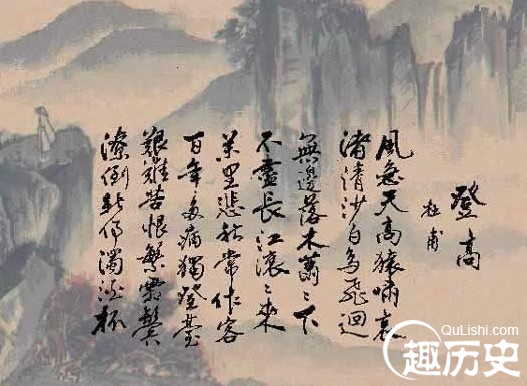 登高
杜甫
風急天高猿嘯哀
渚清沙白鳥飛迴
無邊落木蕭〻下
不盡長江滾〻來
萬里悲秋常作客
百年多病獨登臺
艱難苦恨繁霜鬢
潦倒新停濁酒杯
QuLishi.com
趣历史